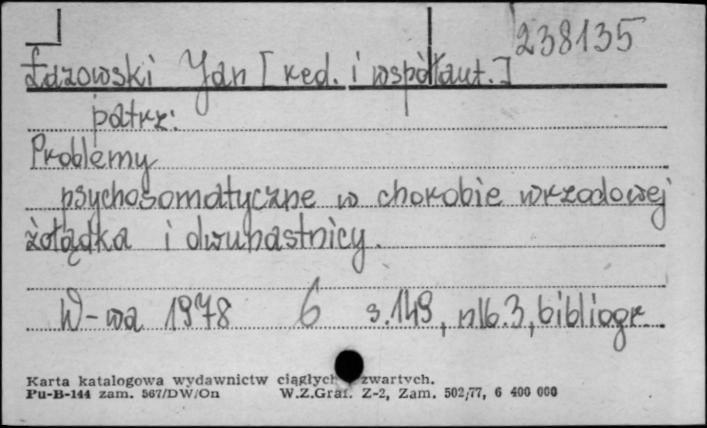 238135
Łazowski Jan [red. i współaut.]
patrz:
Problemy
psychosomatyczne w chorobie wrzodowej
żołądka i dwunastnicy.
W-wa 1978 6 s.149, nlb.3, bibliogr.
Karta katalogowa wydawnictw ciągłych zwartych.
Pu-B-144 zam. 567/DW/On W.Z.Graf. Z-2, Zam. 502/77, 6 400 000